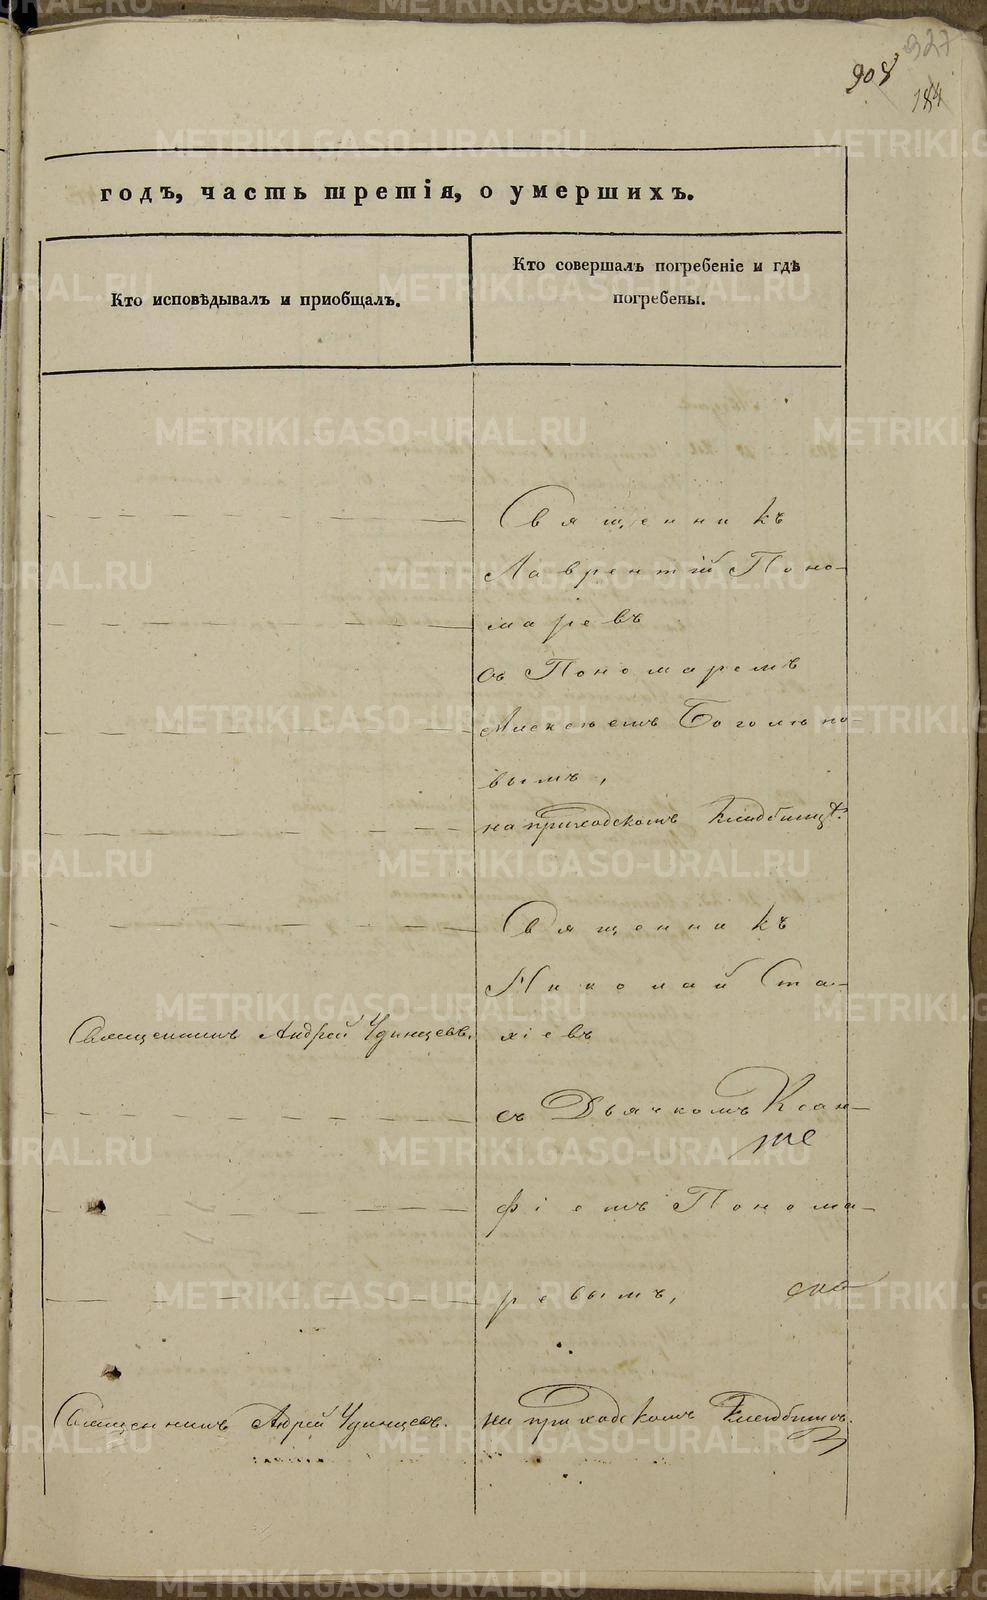 927
908
184
годъ, часть третія, о умершихъ.
Кто исповѣдывалъ и пріобщалъ.
Кто совершалъ погребеніе и гдѣ
погребены.
Священникъ
Лаврентій Поно-
маревъ
съ Пономаремъ
Алексѣемъ Боголѣпо-
вымъ,
на приходскомъ кладбищѣ.
Священникъ
Николай Ста-
хіевъ
Священникъ Андрей Удинцевъ.
съ Дьячкомъ Ксан-
фіемъ Понома-
ревымъ,
Священникъ Андрей Удинцевъ.
на приходскомъ кладбищѣ.
METRIKI.GASO-URAL.RU